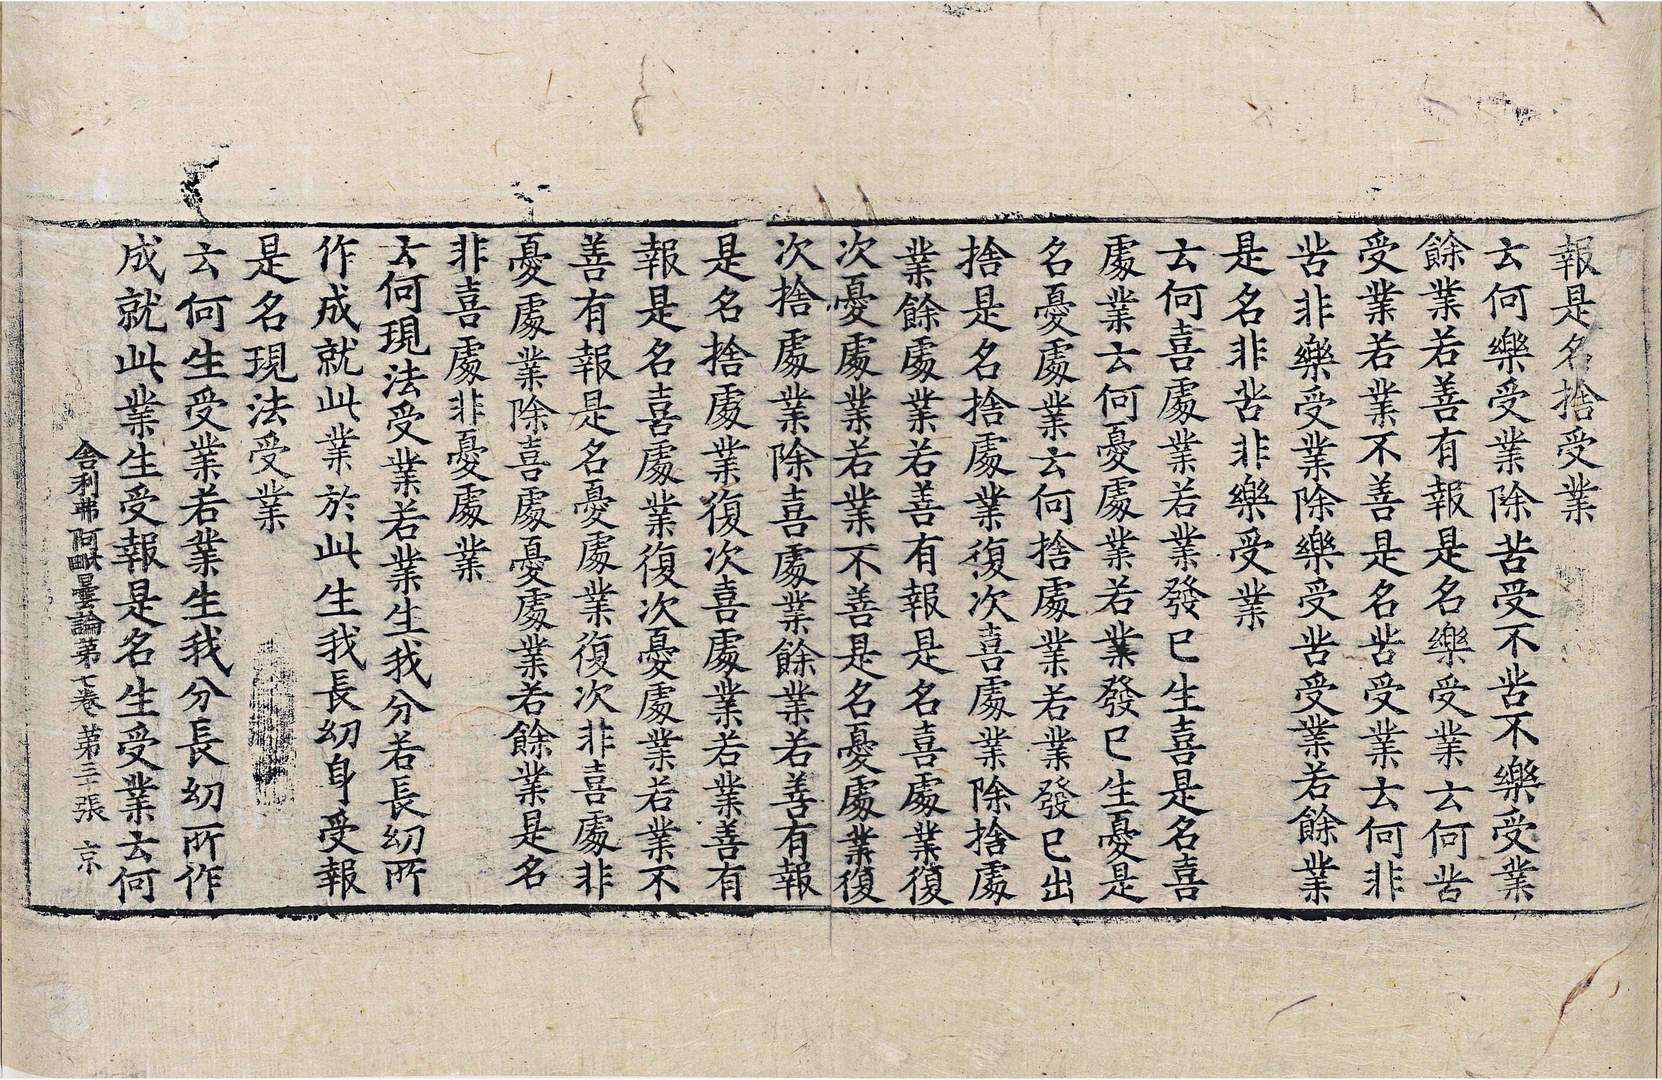 報是名捨受業
云何樂受業除苦受不苦不樂受業
餘業若善有報是名樂受業云何苦
受業若業不善是名苦受業云何非
苦非樂受業除樂受苦受業若餘業
是名非苦非樂受業
云何喜處業若業發已生喜是名喜
處業云何憂處業若業發已生憂是
名憂處業云何捨處業若業發已出
捨是名捨處業復次喜處業除捨處
業餘處業若善有報是名喜處業復
次憂處業若業不善是名憂處業復
次捨處業除喜處業餘業若善有報
是名捨處業復次喜處業若業善有
報是名喜處業復次憂處業若業不
善有報是名憂處業復次非喜處非
憂處業除喜處憂處業若餘業是名
非喜處非憂處業
云何現法受業若業生我分若長幼所
作成就此業於此生我長幼身受報
是名現法受業
云何生受業若業生我分長幼所作
成就此業生受報是名生受業云何
舍利弗阿毗曇論第七卷 第三張 京